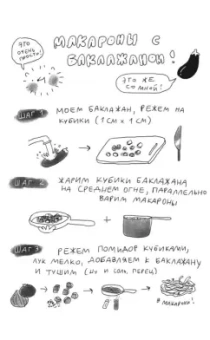 ЭТО
ОЧЕНЬ
ПРОСТО!
МАКАРОНЫ С
БАКЛАЖАНОМ!
ЭТО ЖЕ
СО МНОЙ!
ШАГ 1
МОЕМ БАКЛАЖАН, РЕЖЕМ НА
КУБИКИ (1 СМ × 1 СМ)
ШАГ 2
ЖАРИМ КУБИКИ БАКЛАЖАНА
НА СРЕДНЕМ ОГНЕ, ПАРАЛЛЕЛЬНО
ВАРИМ МАКАРОНЫ
+
ШАГ 3
РЕЖЕМ ПОМИДОР КУБИКАМИ,
ЛУК МЕЛКО, ДОБАВЛЯЕМ К БАКЛАЖАНУ
И ТУШИМ СОЛЬ, ПЕРЕЦ)
К МАКАРОНАМ!